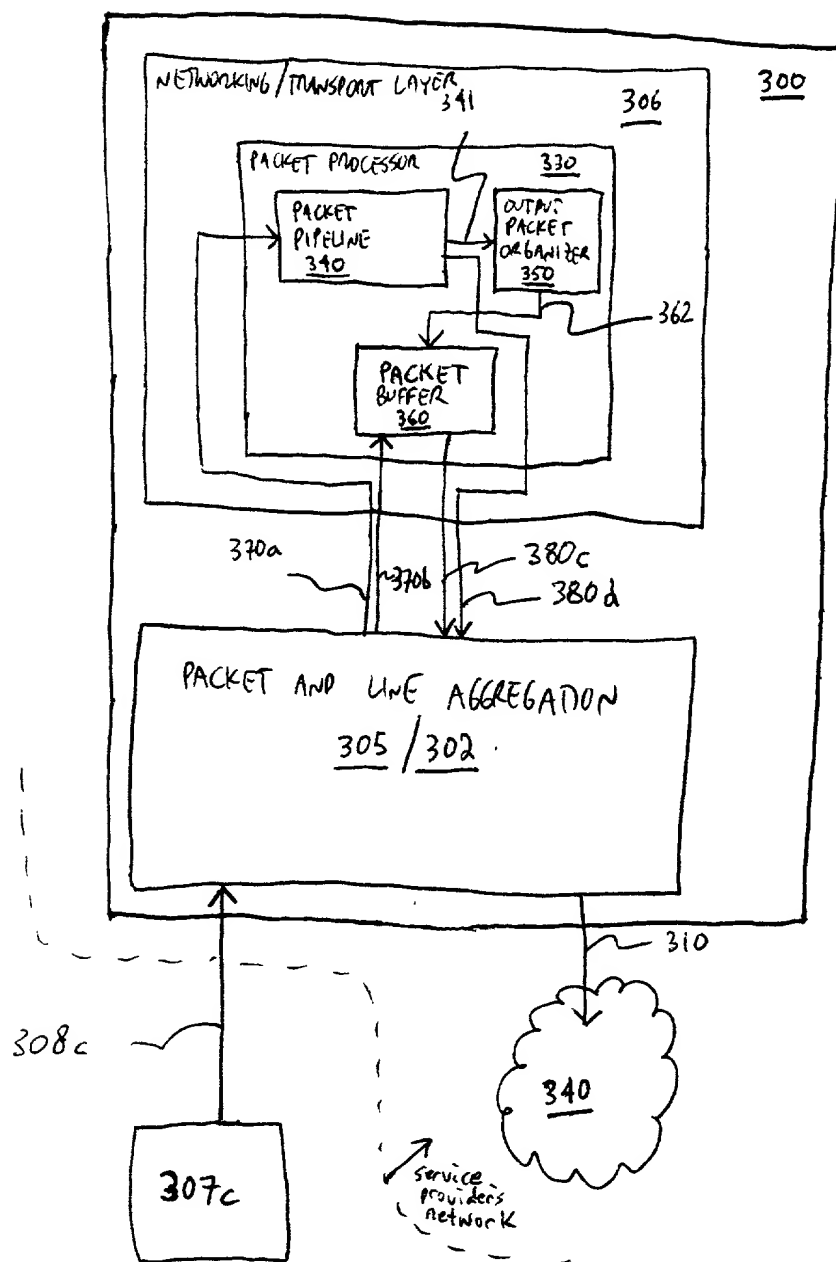 300
NETWORKING/TRANSPORT LAYER
306
341
PACKET PROCESSOR
330
PACKET
PIPELINE
340
OUTPUT
PACKET
ORGANIZER
350
362
PACKET
BUFFER
360
370a
370b
380c
380d
PACKET AND LINE AGGREGATION
305/302
310
308c
340
307c
service
providers
network